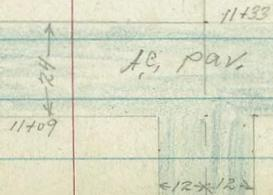 11+33
24
A.C. pav.
11+09
12 12